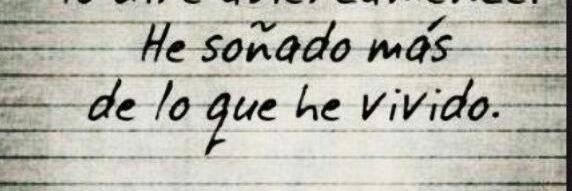 He soñado más
de lo que he vivido.